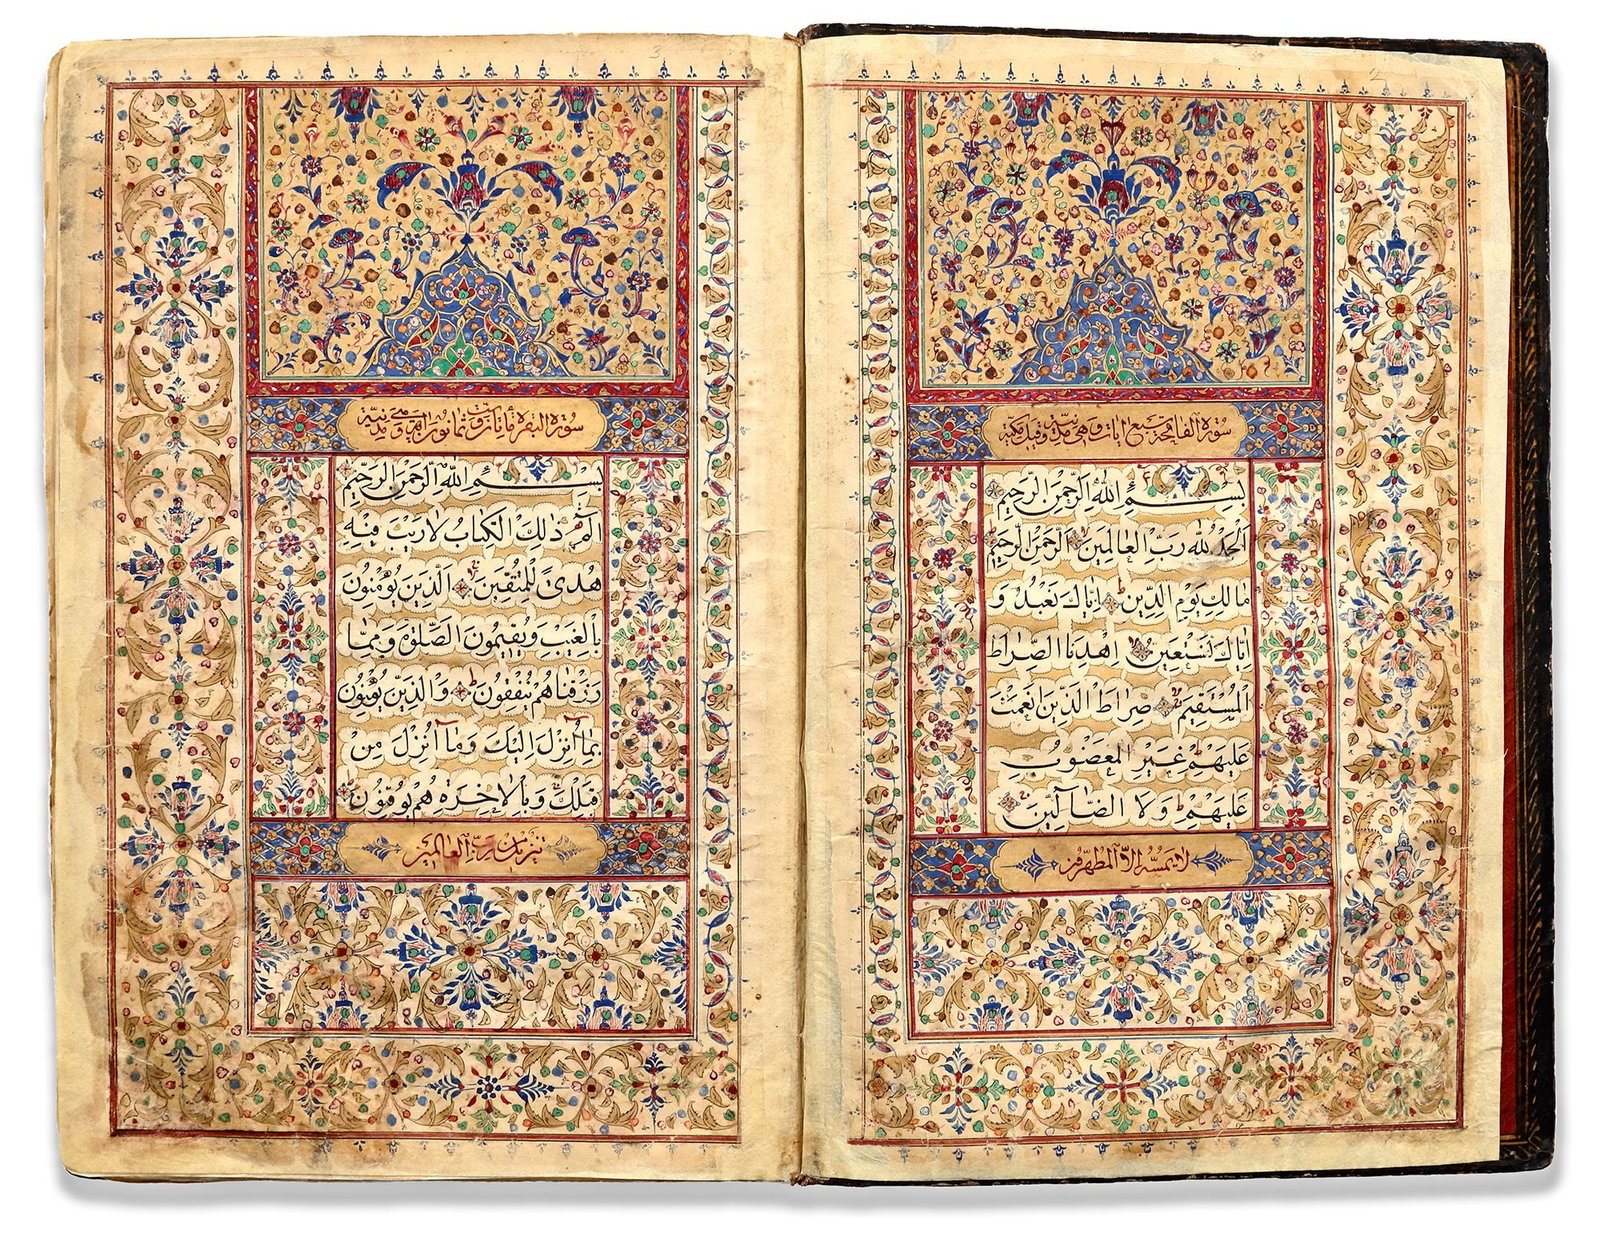 سورة الفاتحة سبع ايات وهي مدنية وقيل مكية
بِسْمِ اللهِ الرَّحْمٰنِ الرَّحِيمِ
اَلْحَمْدُ لِلّٰهِ رَبِّ الْعَالَمِينَ اَلرَّحْمٰنِ الرَّحِيمِ
مَالِكِ يَوْمِ الدِّينِ اِيَّاكَ نَعْبُدُ وَ
اِيَّاكَ نَسْتَعِينُ اِهْدِنَا الصِّرَاطَ
الْمُسْتَقِيمَ صِرَاطَ الَّذِينَ اَنْعَمْتَ
عَلَيْهِمْ غَيْرِ الْمَغْضُوبِ
عَلَيْهِمْ وَلَا الضَّآلِّينَ
لا يمسه الا المطهرون
سورة البقرة مائتان وست وثمانون اية وهي مدنية
بِسْمِ اللهِ الرَّحْمٰنِ الرَّحِيمِ
الٓمٓ ذٰلِكَ الْكِتَابُ لَا رَيْبَ فِيهِ
هُدًى لِلْمُتَّقِينَ اَلَّذِينَ يُؤْمِنُونَ
بِالْغَيْبِ وَيُقِيمُونَ الصَّلٰوةَ وَمِمَّا
رَزَقْنَاهُمْ يُنْفِقُونَ وَالَّذِينَ يُؤْمِنُونَ
بِمَآ اُنْزِلَ اِلَيْكَ وَمَآ اُنْزِلَ مِنْ
قَبْلِكَ وَبِالْاٰخِرَةِ هُمْ يُوقِنُونَ
تنزيل من رب العالمين